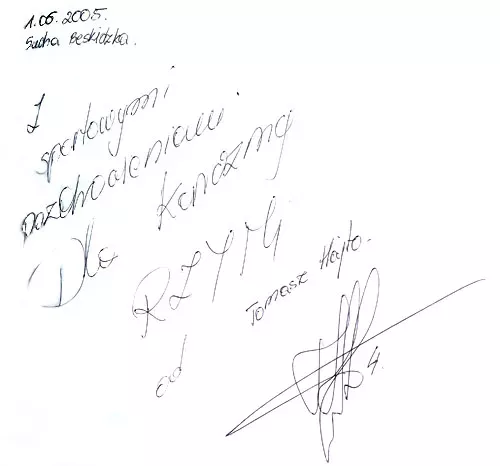 1.06.2005.
Sucha Beskidzka.
Z
sportowymi
pozdrowieniami
Dla
RZYM
od
Tomasz Hajto.
4.